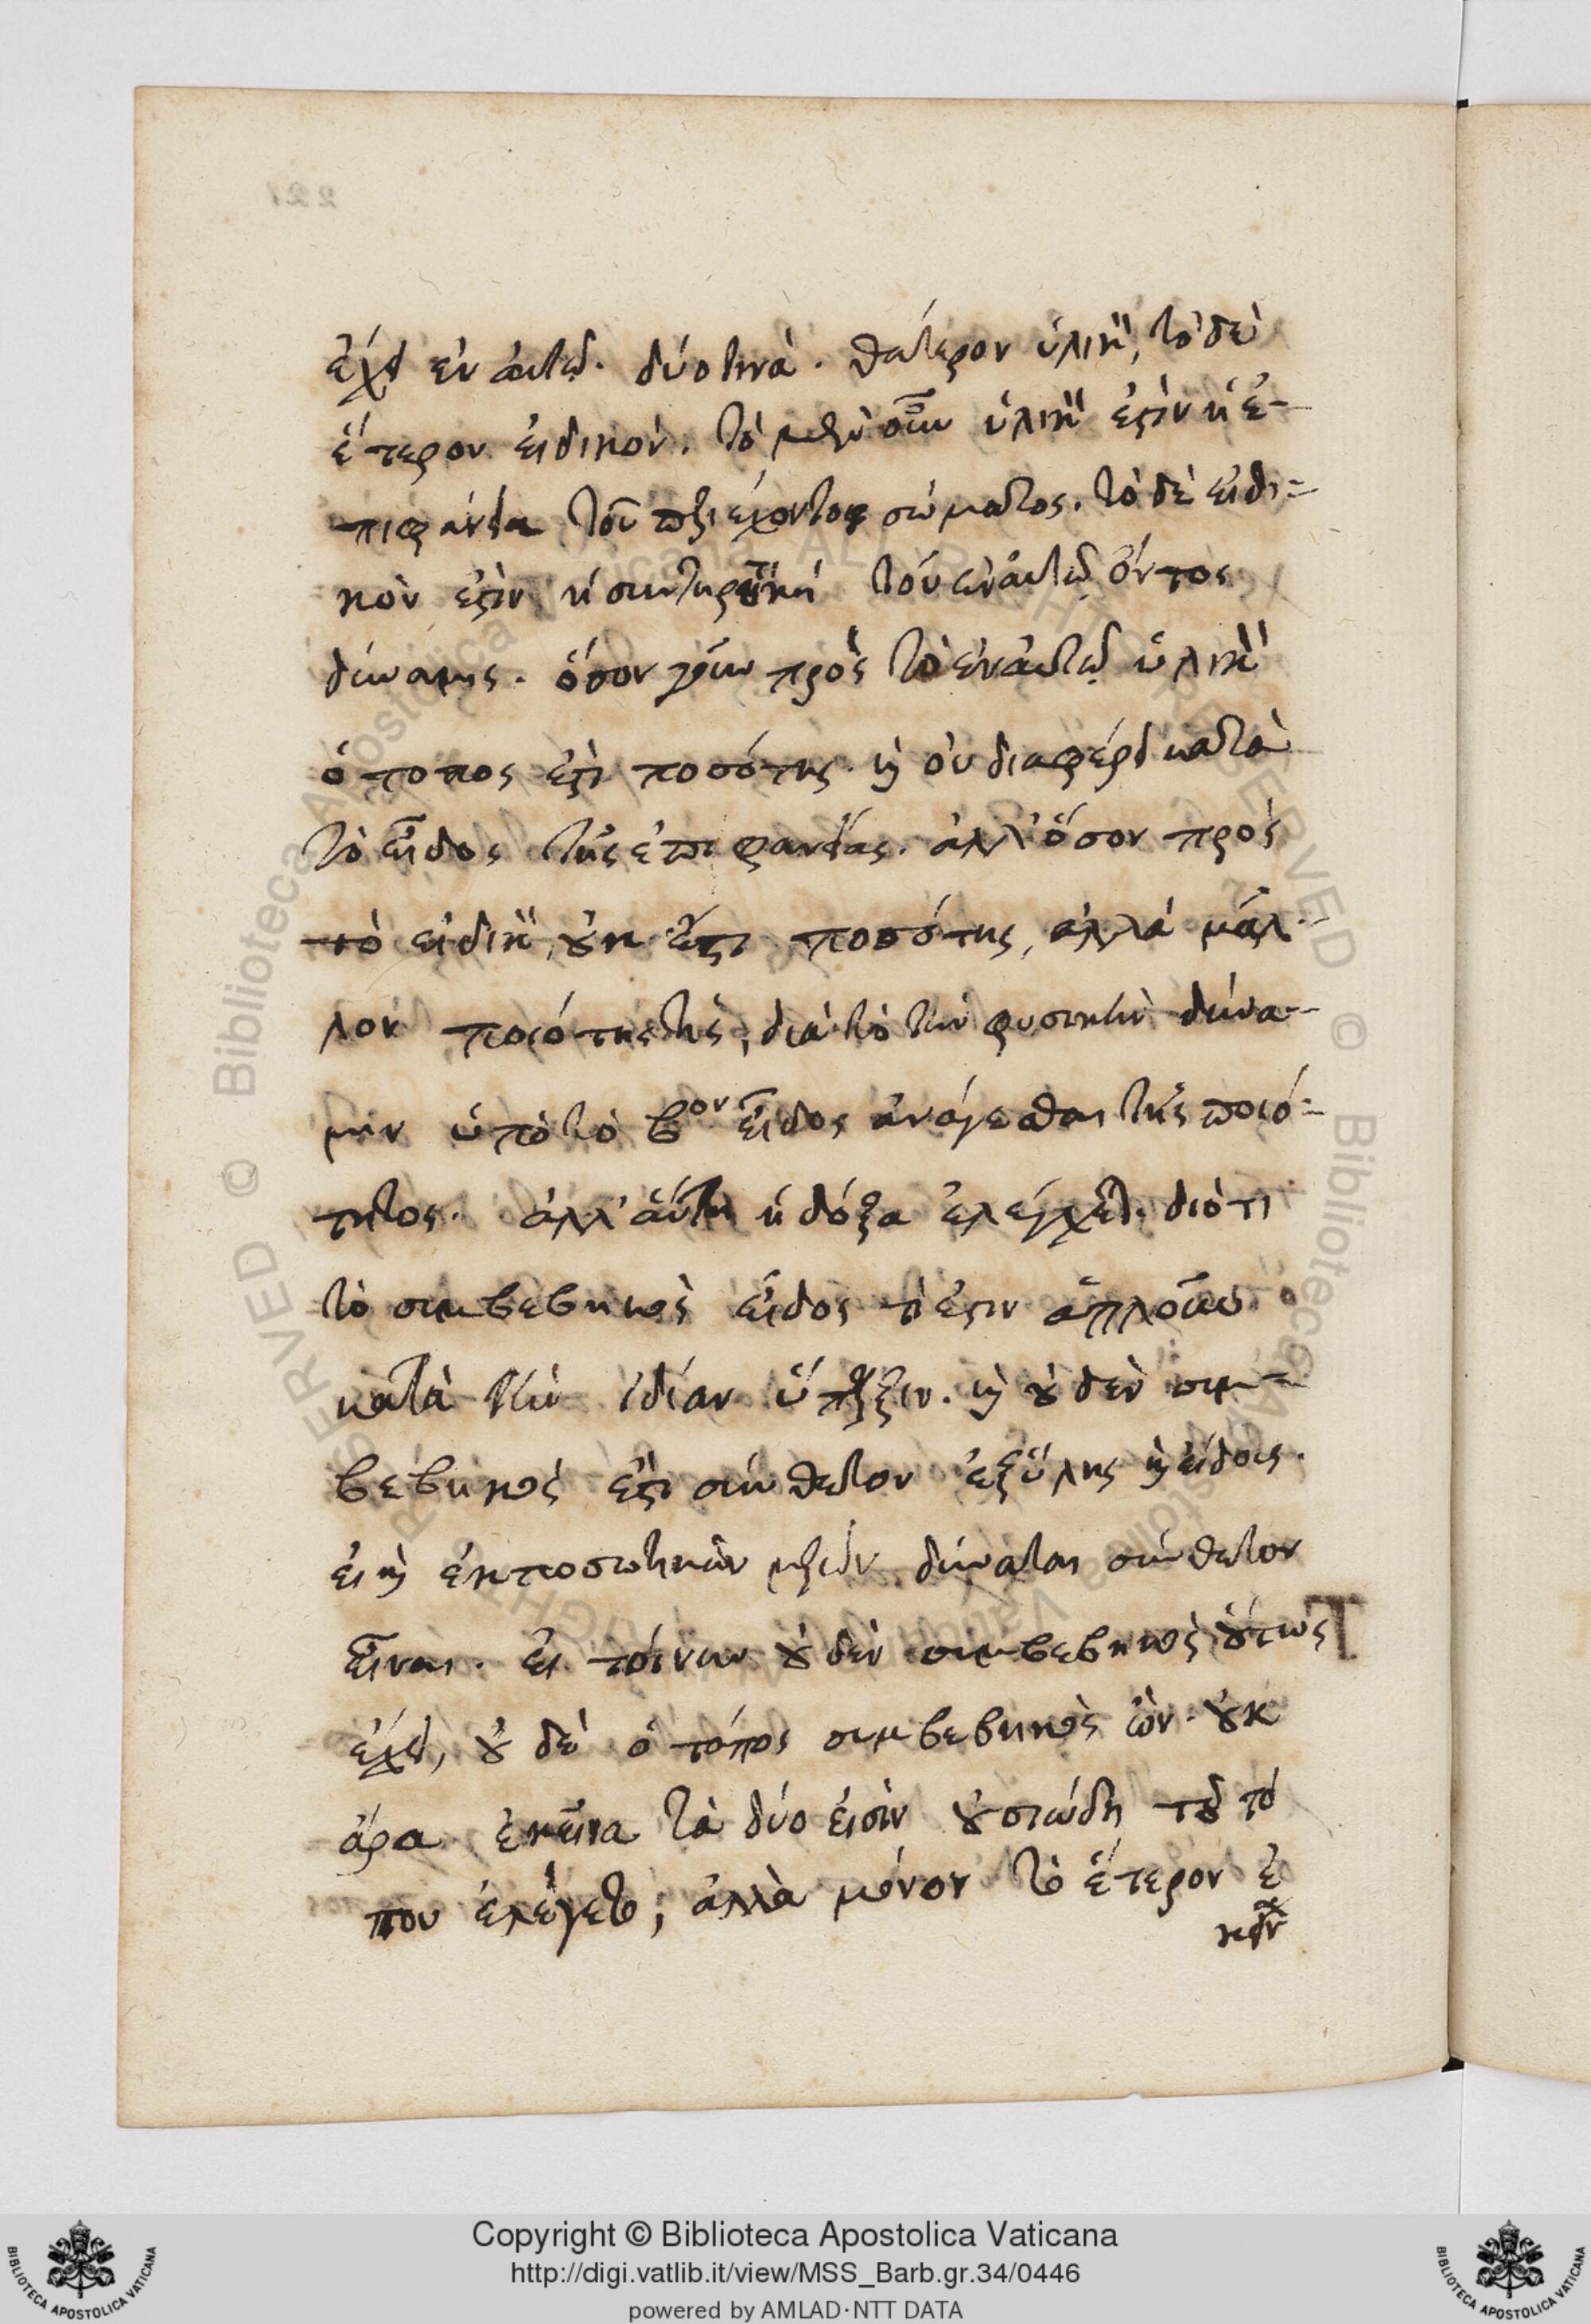 ἔχει ἐν αὑτῷ. δύο τινὰ. θάτερον ὑλικὸν, τὸ δὲ
ἕτερον εἰδικόν. τὸ μὲν οὖν ὑλικὸν ἐστὶν ἡ ἐ-
πιφάνεια τοῦ περιέχοντος σώματος. τὸ δὲ εἰδι-
κὸν ἐστὶν ἡ συντηρητικὴ τοῦ ἐν αὐτῷ ὄντος
δύναμις. ὅσον γοῦν πρὸς τὸ ἐν αὐτῷ ὑλικὸν
ὁ τόπος ἐστὶ ποσότης. καὶ οὐ διαφέρει κατὰ
τὸ εἶδος τῆς ἐπιφανείας. ἀλλ' ὅσον πρὸς
τὸ εἰδικὸν, οὐκ ἔστι ποσότης, ἀλλὰ μᾶλ-
λον ποιότης τὶς, διὰ τὸ τὴν φυσικὴν δύνα-
μιν ὑπὸ τὸ βον εἶδος ἀνάγεσθαι τῆς ποιό-
τητος. ἀλλ' αὕτη ἡ δόξα ἐλέγχεται. διότι
τὸ συμβεβηκὸς εἶδος τί ἐστιν ἁπλοῦν
κατὰ τὴν ἰδίαν ὕπαρξιν. καὶ οὐδὲν συμ-
βεβηκός ἐστι σύνθετον ἐξ ὕλης καὶ εἴδους.
εἰ καὶ ἐκ ποσωτικῶν μερῶν δύναται σύνθετον
εἶναι. εἰ τοίνυν οὐδὲν συμβεβηκὸς οὕτως
ἔχει, οὐδὲ ὁ τόπος συμβεβηκὸς ὢν. οὐκ
ἄρα ἐκεῖνα τὰ δύο εἰσὶν οὐσιώδη τοῦ τό
που ἐλέγετο, ἀλλὰ μόνον τὸ ἕτερον ἐ
Copyright © Biblioteca Apostolica Vaticana
http://digi.vatlib.it/view/MSS_Barb.gr.34/0446
powered by AMLAD·NTT DATA